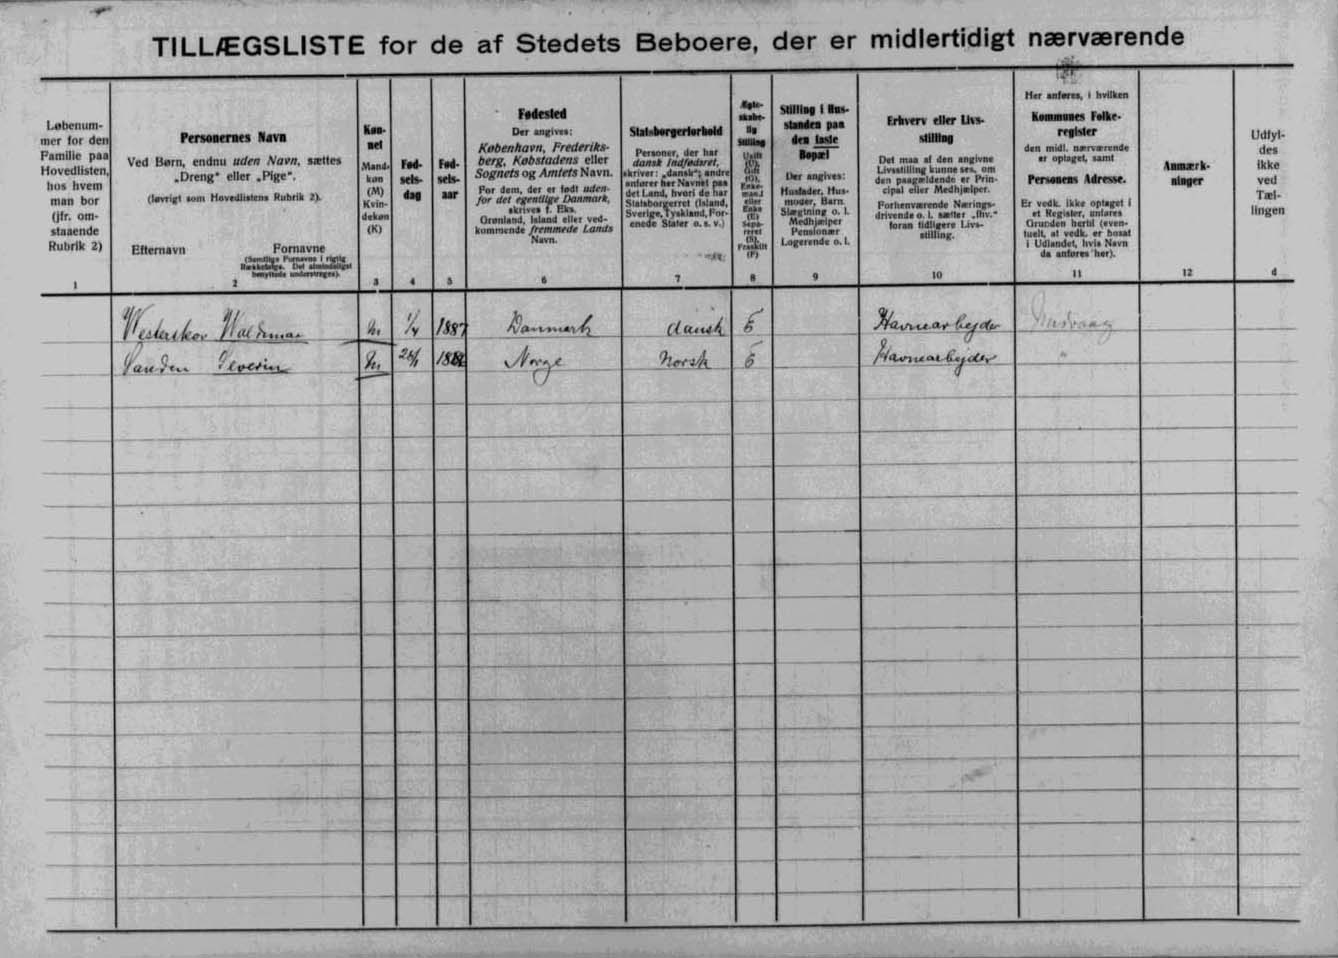 TILLÆGSLISTE for de af Stedets Beboere, der er midlertidigt nærværende
Løbenum-
mer for den
Familie paa
Hovedlisten,
hos hvem
man bor
(jfr. om-
staaende
Rubrik 2)
1
Personernes Navn
Ved Børn, endnu uden Navn, sættes
„Dreng“ eller „Pige“.
(Iøvrigt som Hovedlistens Rubrik 2).
Efternavn Fornavne
(Samtlige Fornavne i rigtig
Rækkefølge. Det almindeligst
benyttede understreges).
2
Køn-
net
Mand-
køn
(M)
Kvin-
dekøn
(K)
3
Fød-
sels-
dag
4
Fød-
sels-
aar
5
Fødested
Der angives:
København, Frederiks-
berg, Købstadens eller
Sognets og Amtets Navn.
For dem, der er født uden-
for det egentlige Danmark,
skrives f. Eks.
Grønland, Island eller ved-
kommende fremmede Lands
Navn.
6
Statsborgerforhold
Personer, der har
dansk Indfødsret,
skriver: „dansk“; andre
anfører her Navnet paa
det Land, hvori de har
Statsborgerret (Island,
Sverige, Tyskland, For-
enede Stater o. s. v.)
7
Ægte-
skabe-
lig
Stilling
Ugift
(U),
Gift
(G),
Enke-
mand
eller
Enke
(E)
Sepa-
reret
(S),
Fraskilt
(F)
8
Stilling i Hus-
standen paa
den faste
Bopæl
Der angives:
Husfader, Hus-
moder, Barn
Slægtning o. l.
Medhjælper
Pensionær
Logerende o. l.
9
Erhverv eller Livs-
stilling
Det maa af den angivne
Livsstilling kunne ses, om
den paagældende er Prin-
cipal eller Medhjælper.
Forhenværende Nærings-
drivende o. l. sætter „fhv.“
foran tidligere Livs-
stilling.
10
Her anføres, i hvilken
Kommunes Folke-
register
den midl. nærværende
er optaget, samt
Personens Adresse.
Er vedk. ikke optaget i
et Register, anføres
Grunden hertil (even-
tuelt, at vedk. er bosat
i Udlandet, hvis Navn
da anføres her).
11
Anmærk-
ninger
12
Udfyl-
des
ikke
ved
Tæl-
lingen
d
Westerskov Waldemar M 1/4 1887 Danmark dansk E Havnearbejder
Severin M Norge Norsk E Havnearbejder "